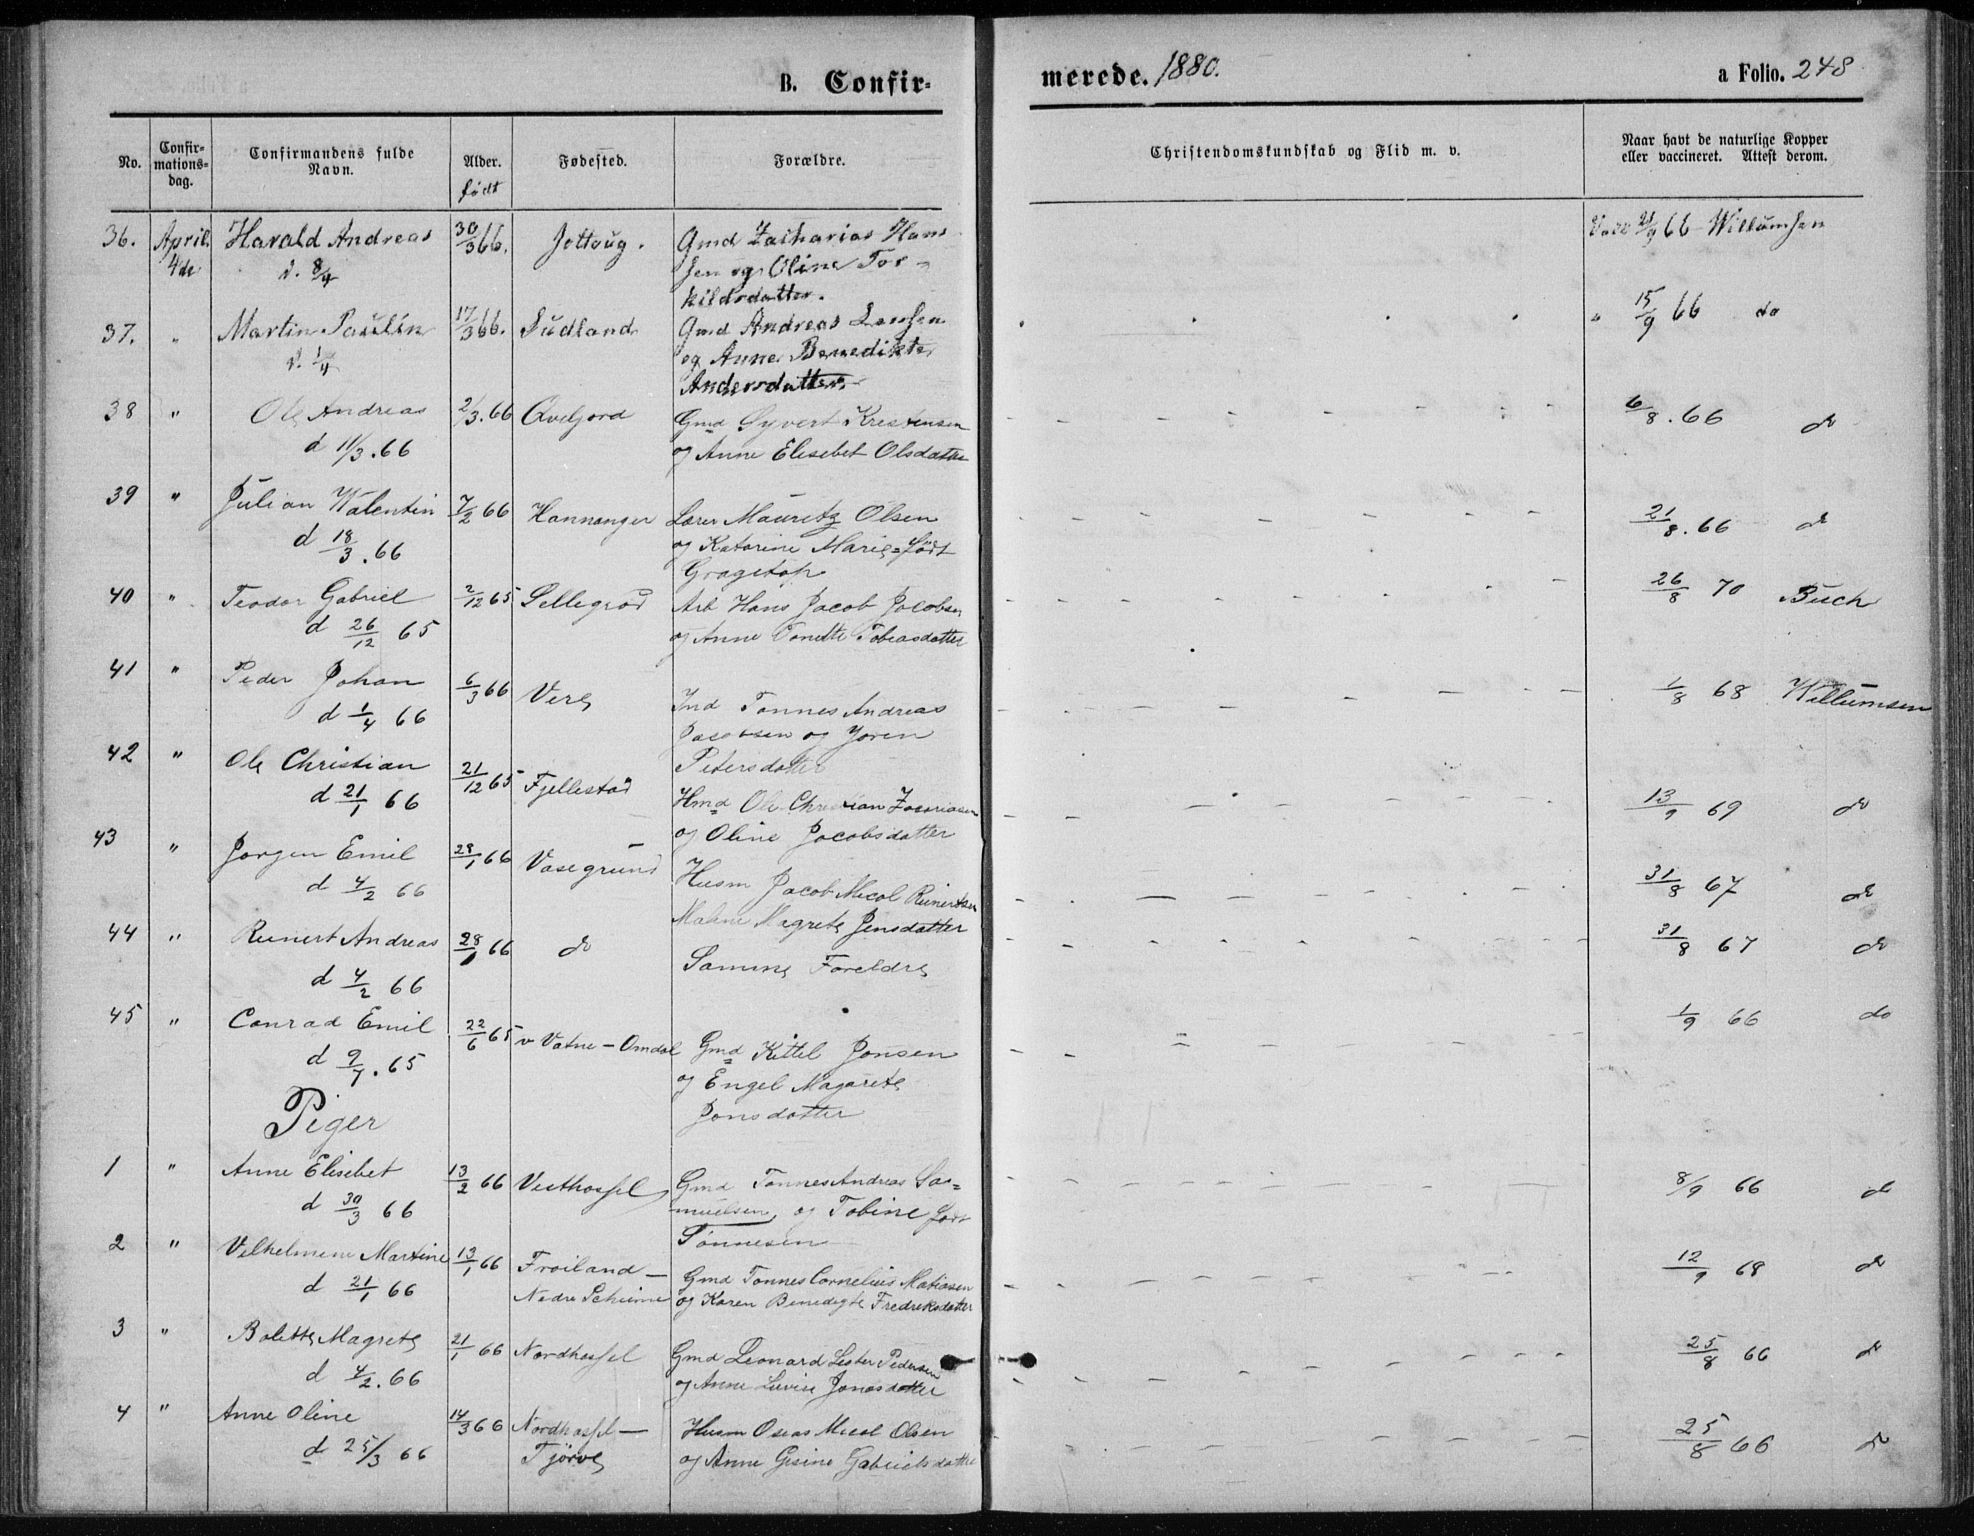 B. Confir-
merede. 1880.
a Folio. 248
No.
Confir-
mations-
dag.
Confirmandens fulde
Navn.
Alder.
født
Fødested.
Forældre.
Christendomskundskab og Flid m. v.
Naar havt de naturlige Kopper
eller vaccineret. Attest derom.
36. April Harald Andreas 30/3 66. Jottoug. Gmd Zacharias Han
4de d. 8/4 sen og Oline Tor-
kildsdatter.
21/9 66 Willumsen
37. " Martin Paulin 17/3 66. Sudland Gmd Andreas Larsen
og Anne Benedikte
Andersdatter
" 15/9 66 do
38 " Ole Andreas 2/3.66 Qveljord Gmd Syvert Krestensen
d 11/3.66 og Anne Elisebet Olsdatter
6/8.66 do
39 " Julian Walentin 7/2 66 Hannanger Lærer Mauretz Olsen
d 18/3.66 og Katarine Marie født
Gragetop
21/8.66 do
40 " Teodor Gabriel 2/12 65 Sellegrød Arb Hans Jacob Jacobsen
d 26/12 65 og Anne Tonette Tobiasdatter
26/8 70 Buch
41 " Peder Johan 6/3 66 Vere Ind Tønnes Andreas
d 1/4 66 Jacobsen og Joren
Petersdatter
1/8 68 Willumsen
42 " Ole Christian 21/12 65 Fjellestad Hmd Ole Christian Zacariasen
d 21/1 66 og Oline Jacobsdatter
13/9 69 do
43 " Jørgen Emil 28/1 66 Vasegrund Husm Jacob Micol Reinertsen
d 4/2 66 Malene Magrete Jensdatter
31/8 67 do
44 " Reinert Andreas 28/1 66 do Samme Foreldre
d 4/2 66
31/8 67 do
45 " Conrad Emil 22/6 65 v Vatne-Omdal Gmd Kittel Jonsen
d 9/7.65 og Engel Magarete
Jonsdatter
1/9 66 do
Piger
1 " Anne Elisebet 13/2 66 Vesthassel Gmd Tønnes Andreas Sa=
d 30/3 66 muelsen og Tobine født
Tønnesen
8/9 66 do
2 " Vilhelmene Martine 13/1 66 Frøiland- Gmd Tonnes Cornelius Matiasen
d 21/1 66 Nedre Scheime og Karen Benedigte Fredreksdatter
12/9 68 do
3 " Bolette Magrete 21/1 66 Nordhassel Gmd Leonard Lester Pedersen
d 4/2.66 og Anne Luvise Jonasdatter
25/8 66 do
4 " Anne Oline 14/3 66 Nordhassel- Husm Oseas Micol Olsen
d 25/3 66 Tjørve og Anne Gisine Gabrielsdatter
25/8 66 do